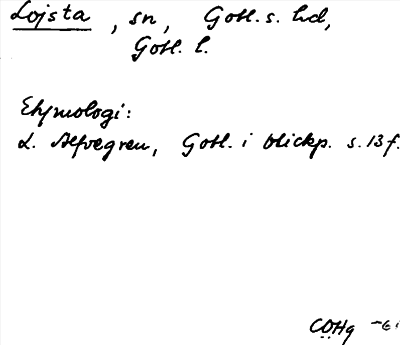 Lojsta, sn, Gotl. s. hd,
Gotl. l.
Etymologi:
L. Alfvegren, Gotl. i blickp. s. 13 f.
COHg -61